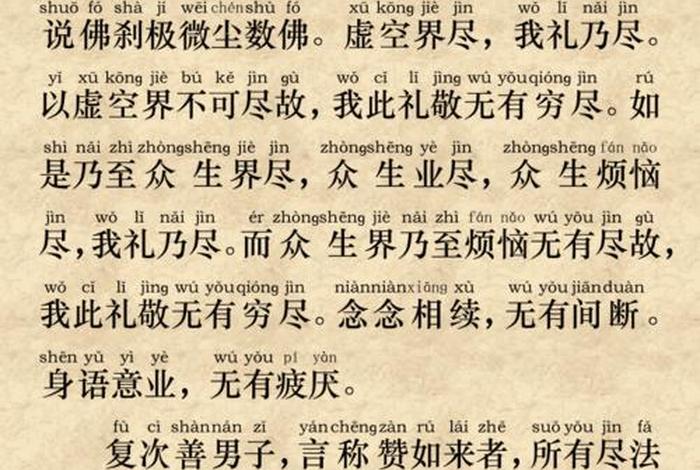 shuō fó shà jí wēi chén shù fó xū kōng jiè jìn wǒ lǐ nǎi jìn
说佛刹极微尘数佛。虚空界尽，我礼乃尽。
yǐ xū kōng jiè bú kě jìn gù wǒ cǐ lǐ jìng wú yǒu qióng jìn rú
以虚空界不可尽故，我此礼敬无有穷尽。如
shì nǎi zhì zhòng shēng jiè jìn zhòng shēng yè jìn zhòng shēng fán nǎo
是乃至众生界尽，众生业尽，众生烦恼
jìn wǒ lǐ nǎi jìn ér zhòng shēng jiè nǎi zhì fán nǎo wú yǒu jìn gù
尽，我礼乃尽。而众生界乃至烦恼无有尽故，
wǒ cǐ lǐ jìng wú yǒu qióng jìn niàn niàn xiāng xù wú yǒu jiān duàn
我此礼敬无有穷尽。念念相续，无有间断。
shēn yǔ yì yè wú yǒu pí yàn
身语意业，无有疲厌。
fù cì shàn nán zǐ yán chēng zàn rú lái zhě suǒ yǒu jìn fǎ
复次善男子，言称赞如来者，所有尽法